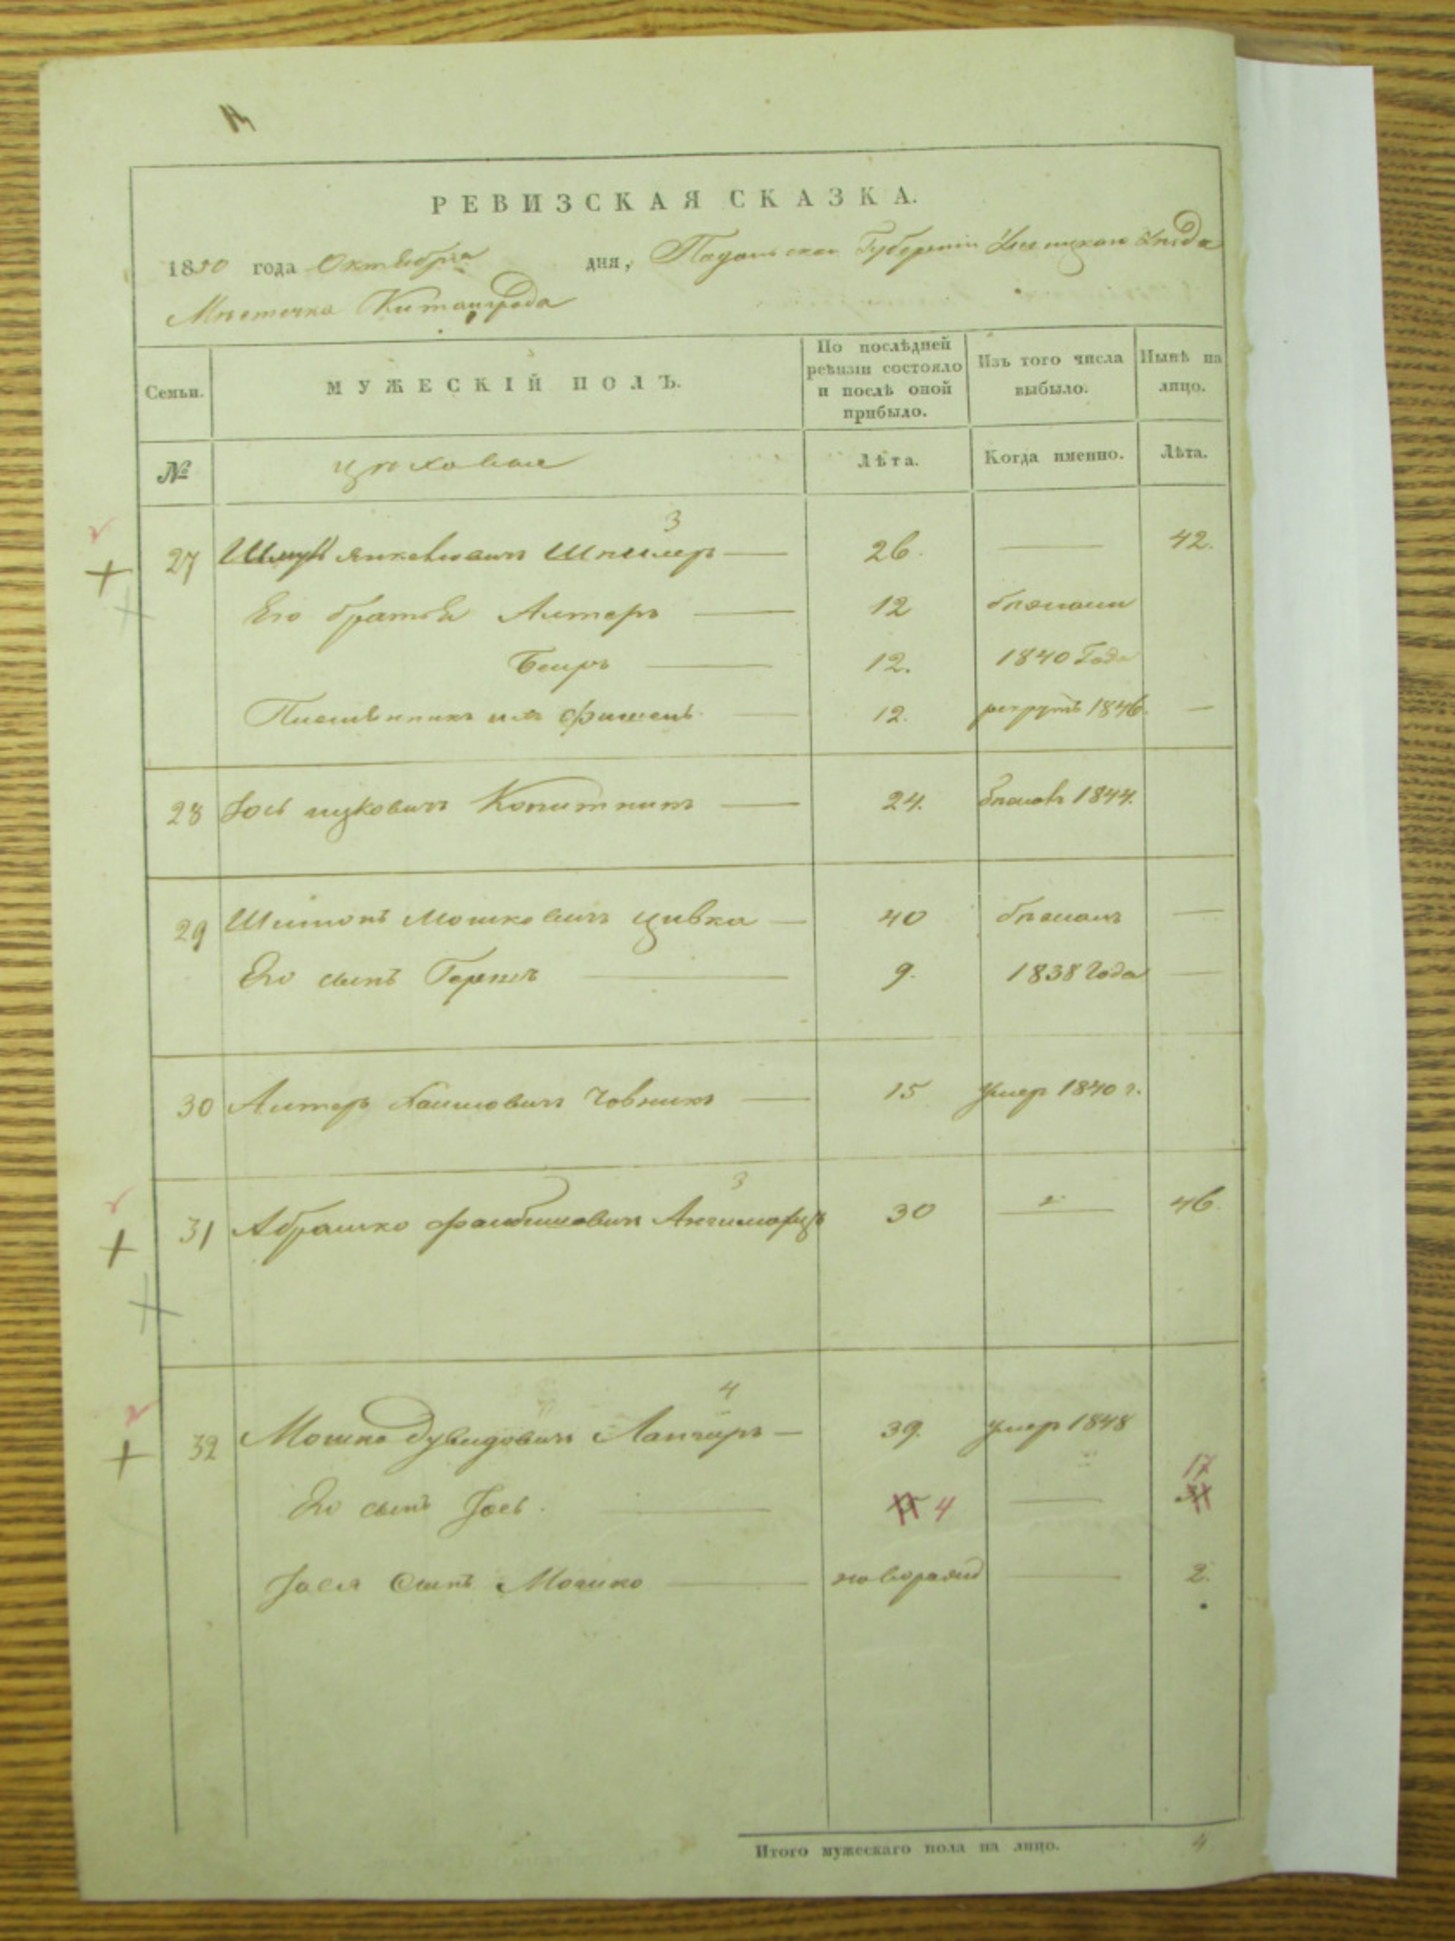 РЕВИЗСКАЯ СКАЗКА.
1850 года Октебря дня, Падольской Губернии Ушицкаго Уезда
Местечка Китайгрода
Семьи.
МУЖЕСКІЙ ПОЛЪ.
По послѣдней ревизіи состояло и послѣ оной прибыло.
Изъ того числа выбыло.
Нынѣ на лицо.
№
Лѣта.
Когда именно.
Лѣта.
3
27 Янкелювичъ 26. 42.
Его братья Алтеръ 12 бежали
Беиръ 12. 1840 Года
Племѣнникъ ихъ Фишель 12. рекрутъ 1846.
28 Іось ицковичъ Копитникъ 24. бежалъ 1844.
29 Шимонъ Мошковичъ цивка 40 бежалъ
Его сынъ Гершъ 9. 1838 Года
30 Алтеръ Хаимовичъ 15 умер 1840 г.
3
31 Абрашко Фаибишовичъ 30 46.
4
32 Мошко Дувидовичъ Лангиръ 39. умер 1848
17
Его сынъ Іось. 4
Іося Сынъ Мошко новорожд 2.
Итого мужескаго пола на лицо. 4